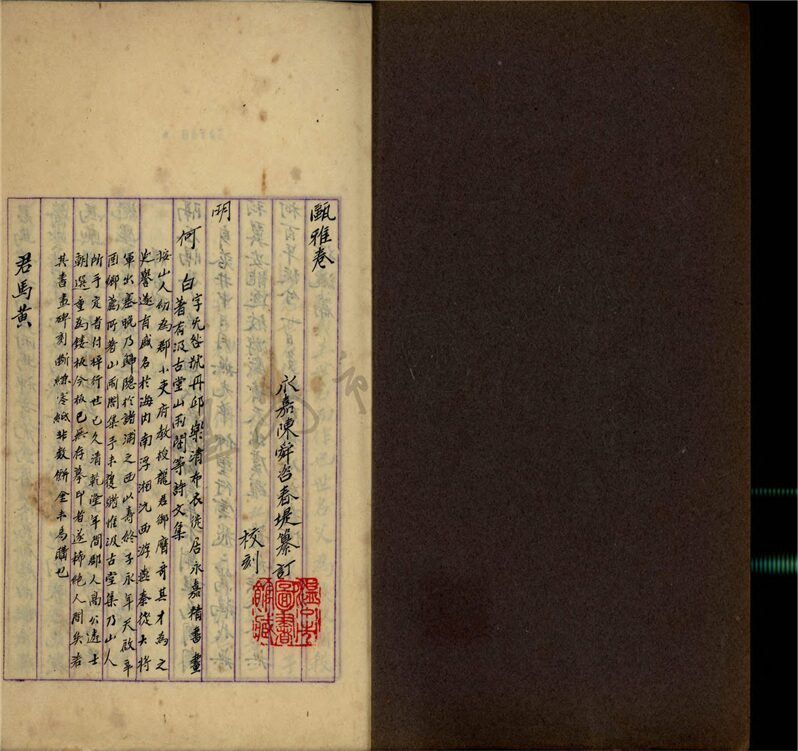 甌雅卷
永嘉陳舜咨春堤纂訂
校刻
明
何白
字无咎號丹邱樂清布衣徙居永嘉精書畫
著有汲古堂山雨閣等詩文集
按山人幼為郡小吏府教授龍君御賡奇其才為之
延譽遂有盛名於海內南浮湘沅西游燕秦從大將
軍出塞晚乃歸隱於諸浦之西以壽終子永年天啟辛
酉鄉薦所著山雨閣集予未復覩惟汲古堂集乃山人
所手定者付梓行世已久清乾隆年間郡人高公遠士
朝選重為鋟板今板已無存摹印者遂稀絕人間矣若
其書畫碑刻斷縑零紙非數餅金未易購也
君馬黃
圖書館藏